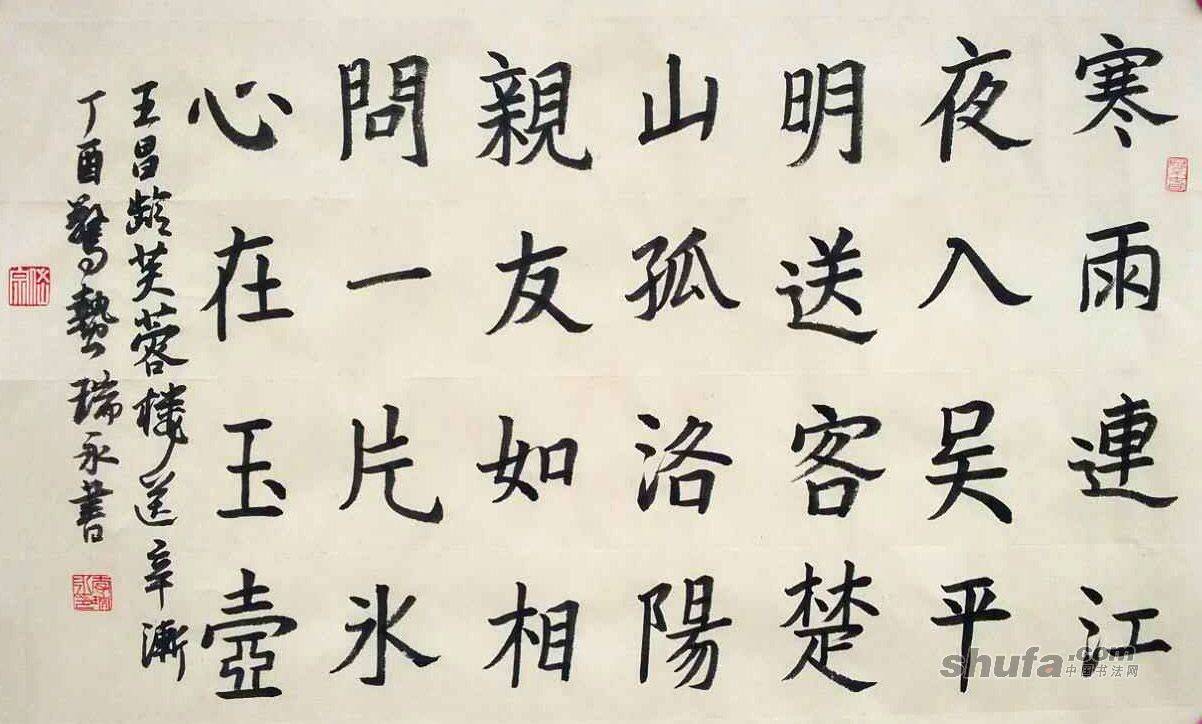 寒雨連江
夜入吴平
明送客楚
山孤洛陽
親友如相
問一片氷
心在玉壺
王昌齡芙蓉樓送辛漸
丁酉驚蟄瑞永書
shufa.com
中国书法网